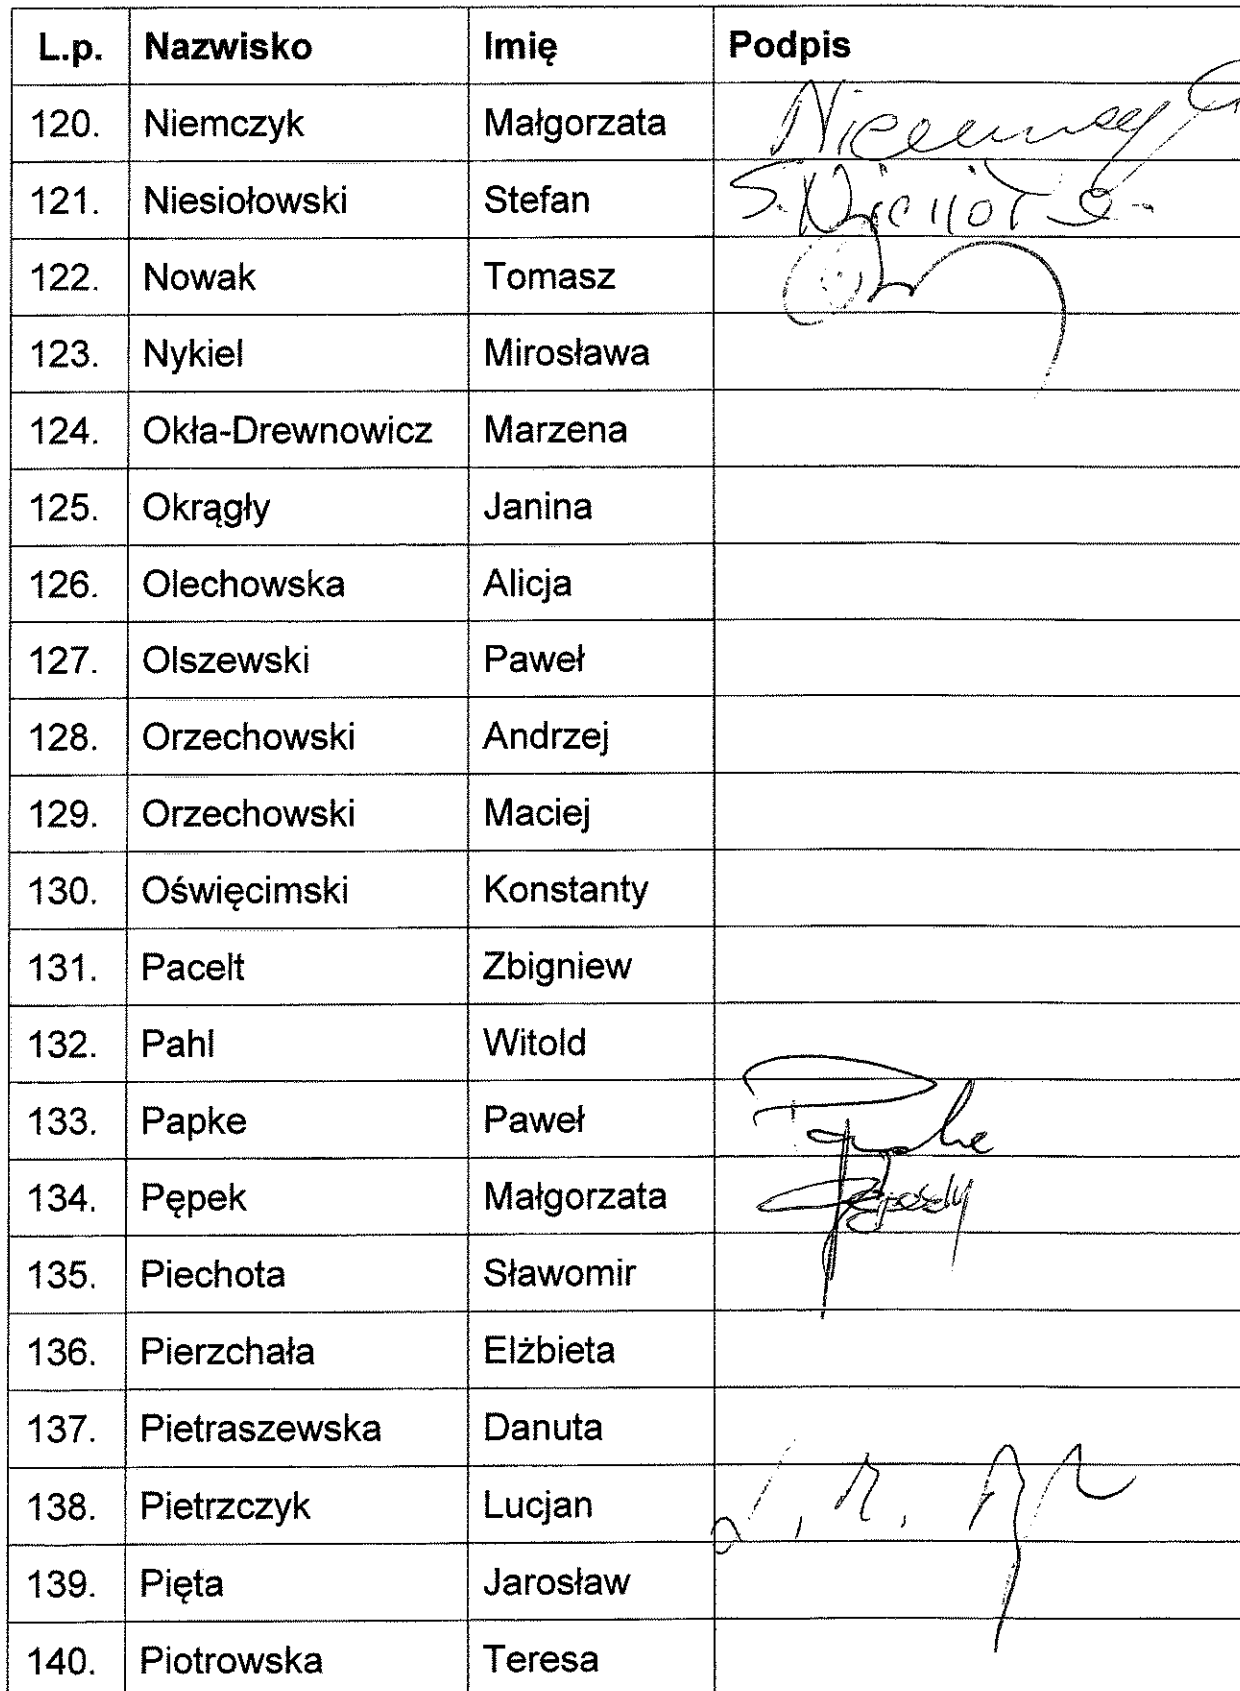 L.p. Nazwisko Imię Podpis
120. Niemczyk Małgorzata
121. Niesiołowski Stefan S.
122. Nowak Tomasz
123. Nykiel Mirosława
124. Okła-Drewnowicz Marzena
125. Okrągły Janina
126. Olechowska Alicja
127. Olszewski Paweł
128. Orzechowski Andrzej
129. Orzechowski Maciej
130. Oświęcimski Konstanty
131. Pacelt Zbigniew
132. Pahl Witold
133. Papke Paweł Papke
134. Pępek Małgorzata
135. Piechota Sławomir
136. Pierzchała Elżbieta
137. Pietraszewska Danuta
138. Pietrzczyk Lucjan
139. Pięta Jarosław
140. Piotrowska Teresa